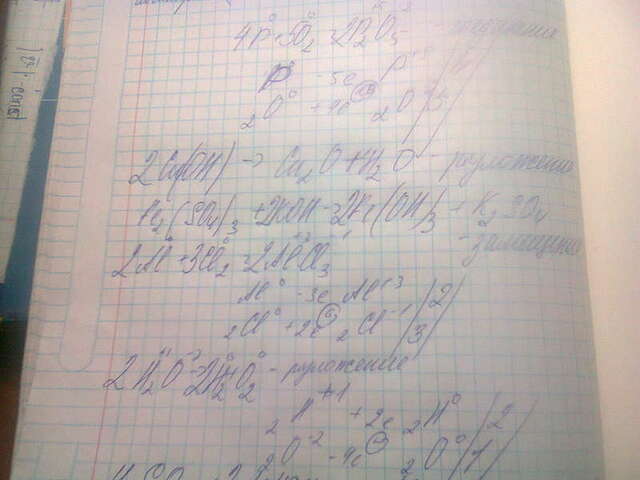 4P⁰ + 5O₂⁰ = 2P₂⁺⁵O₅⁻²
P⁰ - 5e P⁺⁵
₂O⁰ + 4e ₂O⁻² 5
2Cu(OH) → Cu₂O + H₂O - разложение
Fe₂(SO₄)₃ + 2KOH = 2Fe(OH)₃ + K₂SO₄
- замещение
2Al⁰ + 3Cl₂⁰ = 2Al⁺³Cl₃⁻¹
Al⁰ - 3e Al⁺³ 2
₂Cl⁰ + 2e ₂Cl⁻¹ 3
2H₂⁺¹O⁻² = 2H₂⁰ + O₂⁰ - разложение
₂H⁺¹ + 2e ₂H⁰ 2
₂O⁻² - 4e ₂O⁰ 1